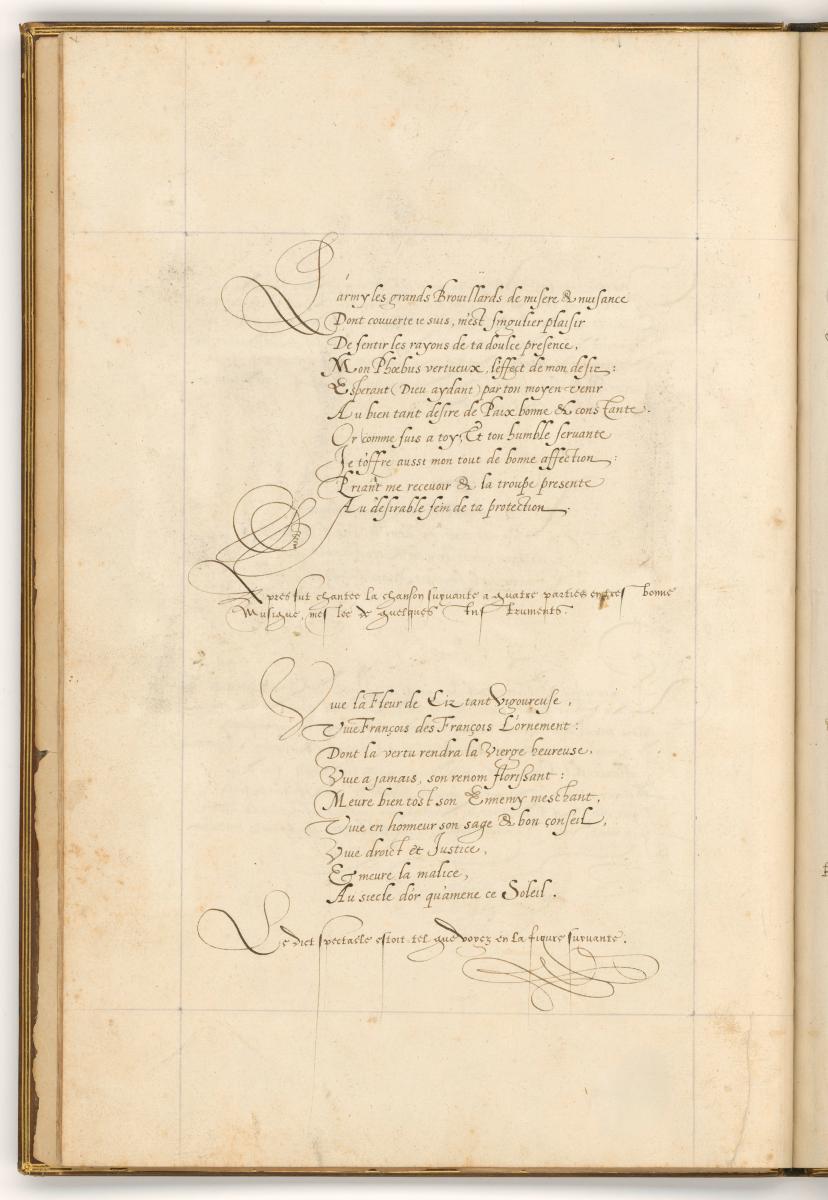 Parmy les grands Brouillards de misere & nuisance
Dont couverte ie suis, m'est singulier plaisir
De sentir les rayons de ta doulce presence,
Mon Phœbus vertueux, l'effect de mon desir:
Esperant (Dieu aydant) par ton moyen venir
Au bien tant desire de Paix bonne & constante.
Or comme suis a toy, Et ton humble servante
Je t'offre aussi mon tout de bonne affection:
Priant me recevoir & la troupe presente
Au desirable sein de ta protection.
Apres fut chantee la chanson suyuante a quatre parties en tres bonne
Musique, meslee de quelques Instruments.
Viue la Fleur de Liz tant Vigoureuse,
Viue François des François L'ornement:
Dont la vertu rendra la Vierge heureuse,
Viue a jamais, son renom florissant:
Meure bien tost son Ennemy meschant,
Viue en honneur son sage & bon conseil,
Viue droict et Justice,
Et meure la malice,
Au siecle d'or qu'amene ce Soleil.
Le dict spectacle estoit tel que voyez en la figure suyuante.